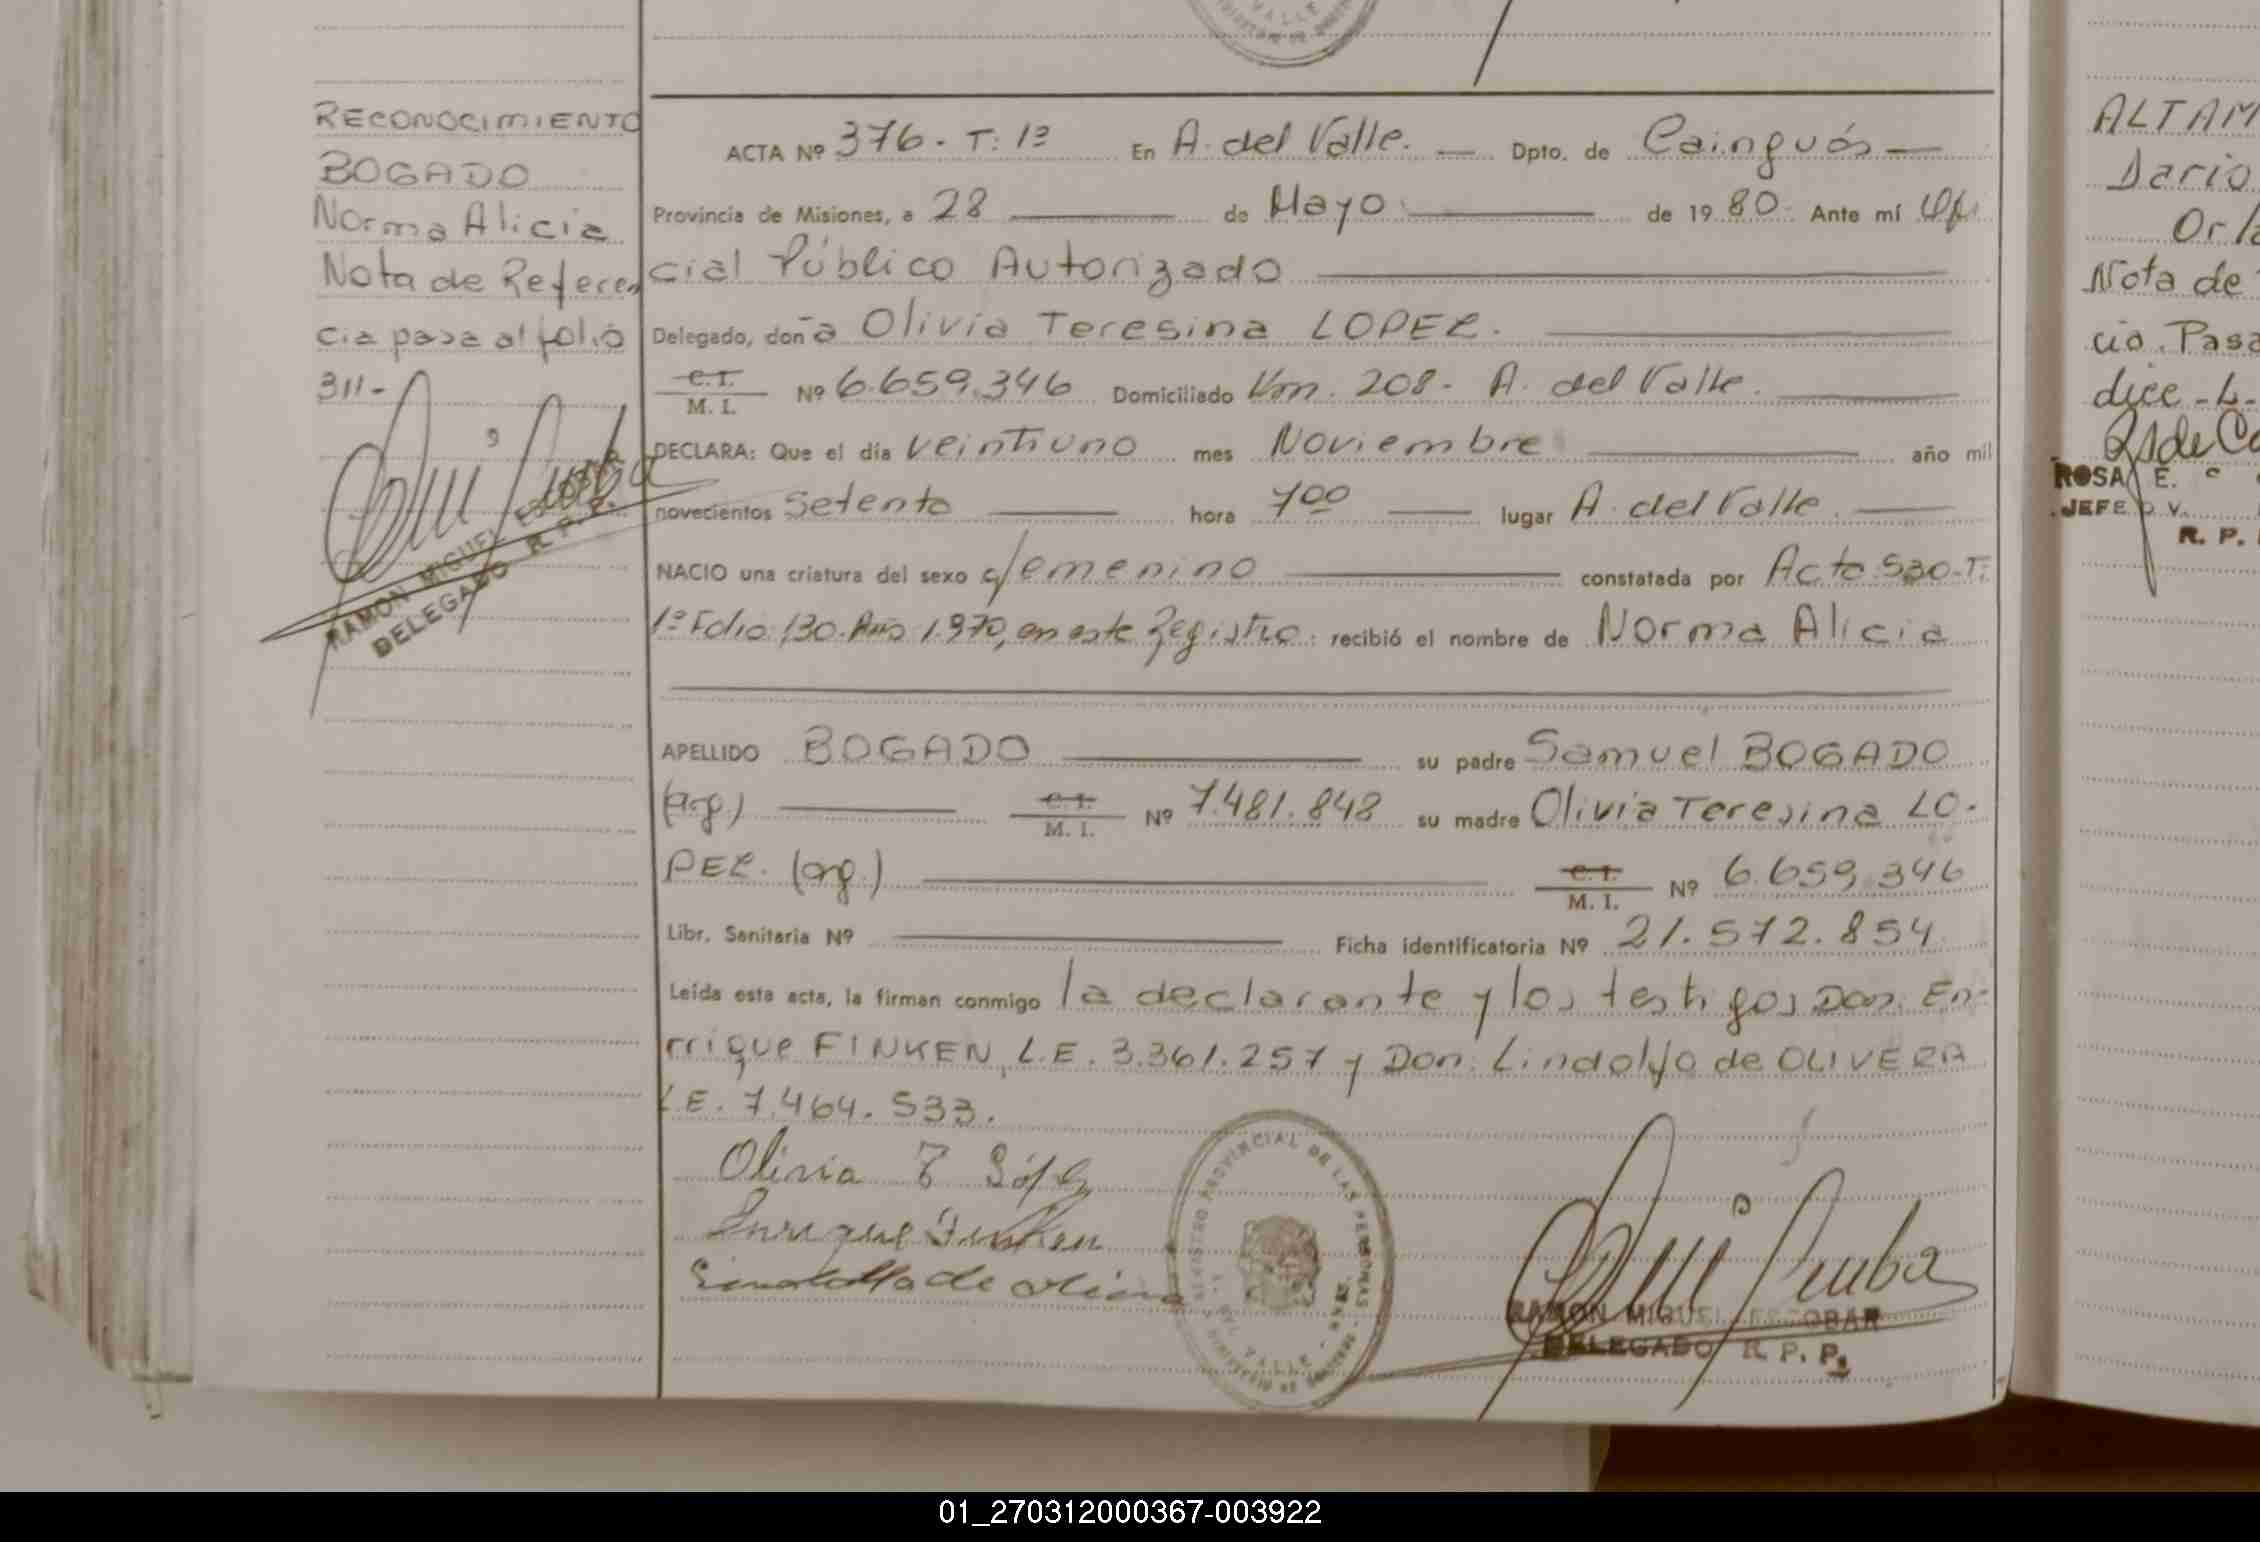 RECONOCIMIENTO
BOGADO
Norma Alicia
Nota de Referen
cia pasa al folio
311-
RAMON MIGUEL ESCOBAR
DELEGADO R. P. P.
ACTA Nº 376. T: 1º En A. del Valle. — Dpto. de Cainguás —
Provincia de Misiones, a 28 de Mayo de 1980. Ante mí Ofi
cial Público Autorizado
Delegado, doña Olivia Teresina LOPEZ.
C.I.
M. I. Nº 6.659.346 Domiciliado Km. 208- A. del Valle.
DECLARA: Que el día veintiuno mes Noviembre año mil
novecientos setenta hora 7⁰⁰ lugar A. del Valle
NACIO una criatura del sexo femenino constatada por Acta 530-T:
1º Folio 130. Año 1.970, en este Registro: recibió el nombre de Norma Alicia
APELLIDO BOGADO su padre Samuel BOGADO
(arg.) C.I. M. I. Nº 7.481.848 su madre Olivia Teresina LO-
PEZ. (arg.) C.I. M. I. Nº 6.659.346
Libr. Sanitaria Nº Ficha identificatoria Nº 21.572.854
Leída esta acta, la firman conmigo la declarante y los testigos Don. En-
rrique FINKEN, L.E. 3.361.257 y Don: Lindolfo de OLIVERA
L.E. 7.464.533.
Olivia T López
Enrique Finken
Lindolfo de Olivera
REGISTRO PROVINCIAL DE LAS PERSONAS
DEL VALLE
RAMON MIGUEL ESCOBAR
DELEGADO R. P. P.
VALLE
ALTAM
Dario
Orla
Nota de
cia. Pasa
dice - L-
ROSA E. C
JEFE
R. P.
01_270312000367-003922